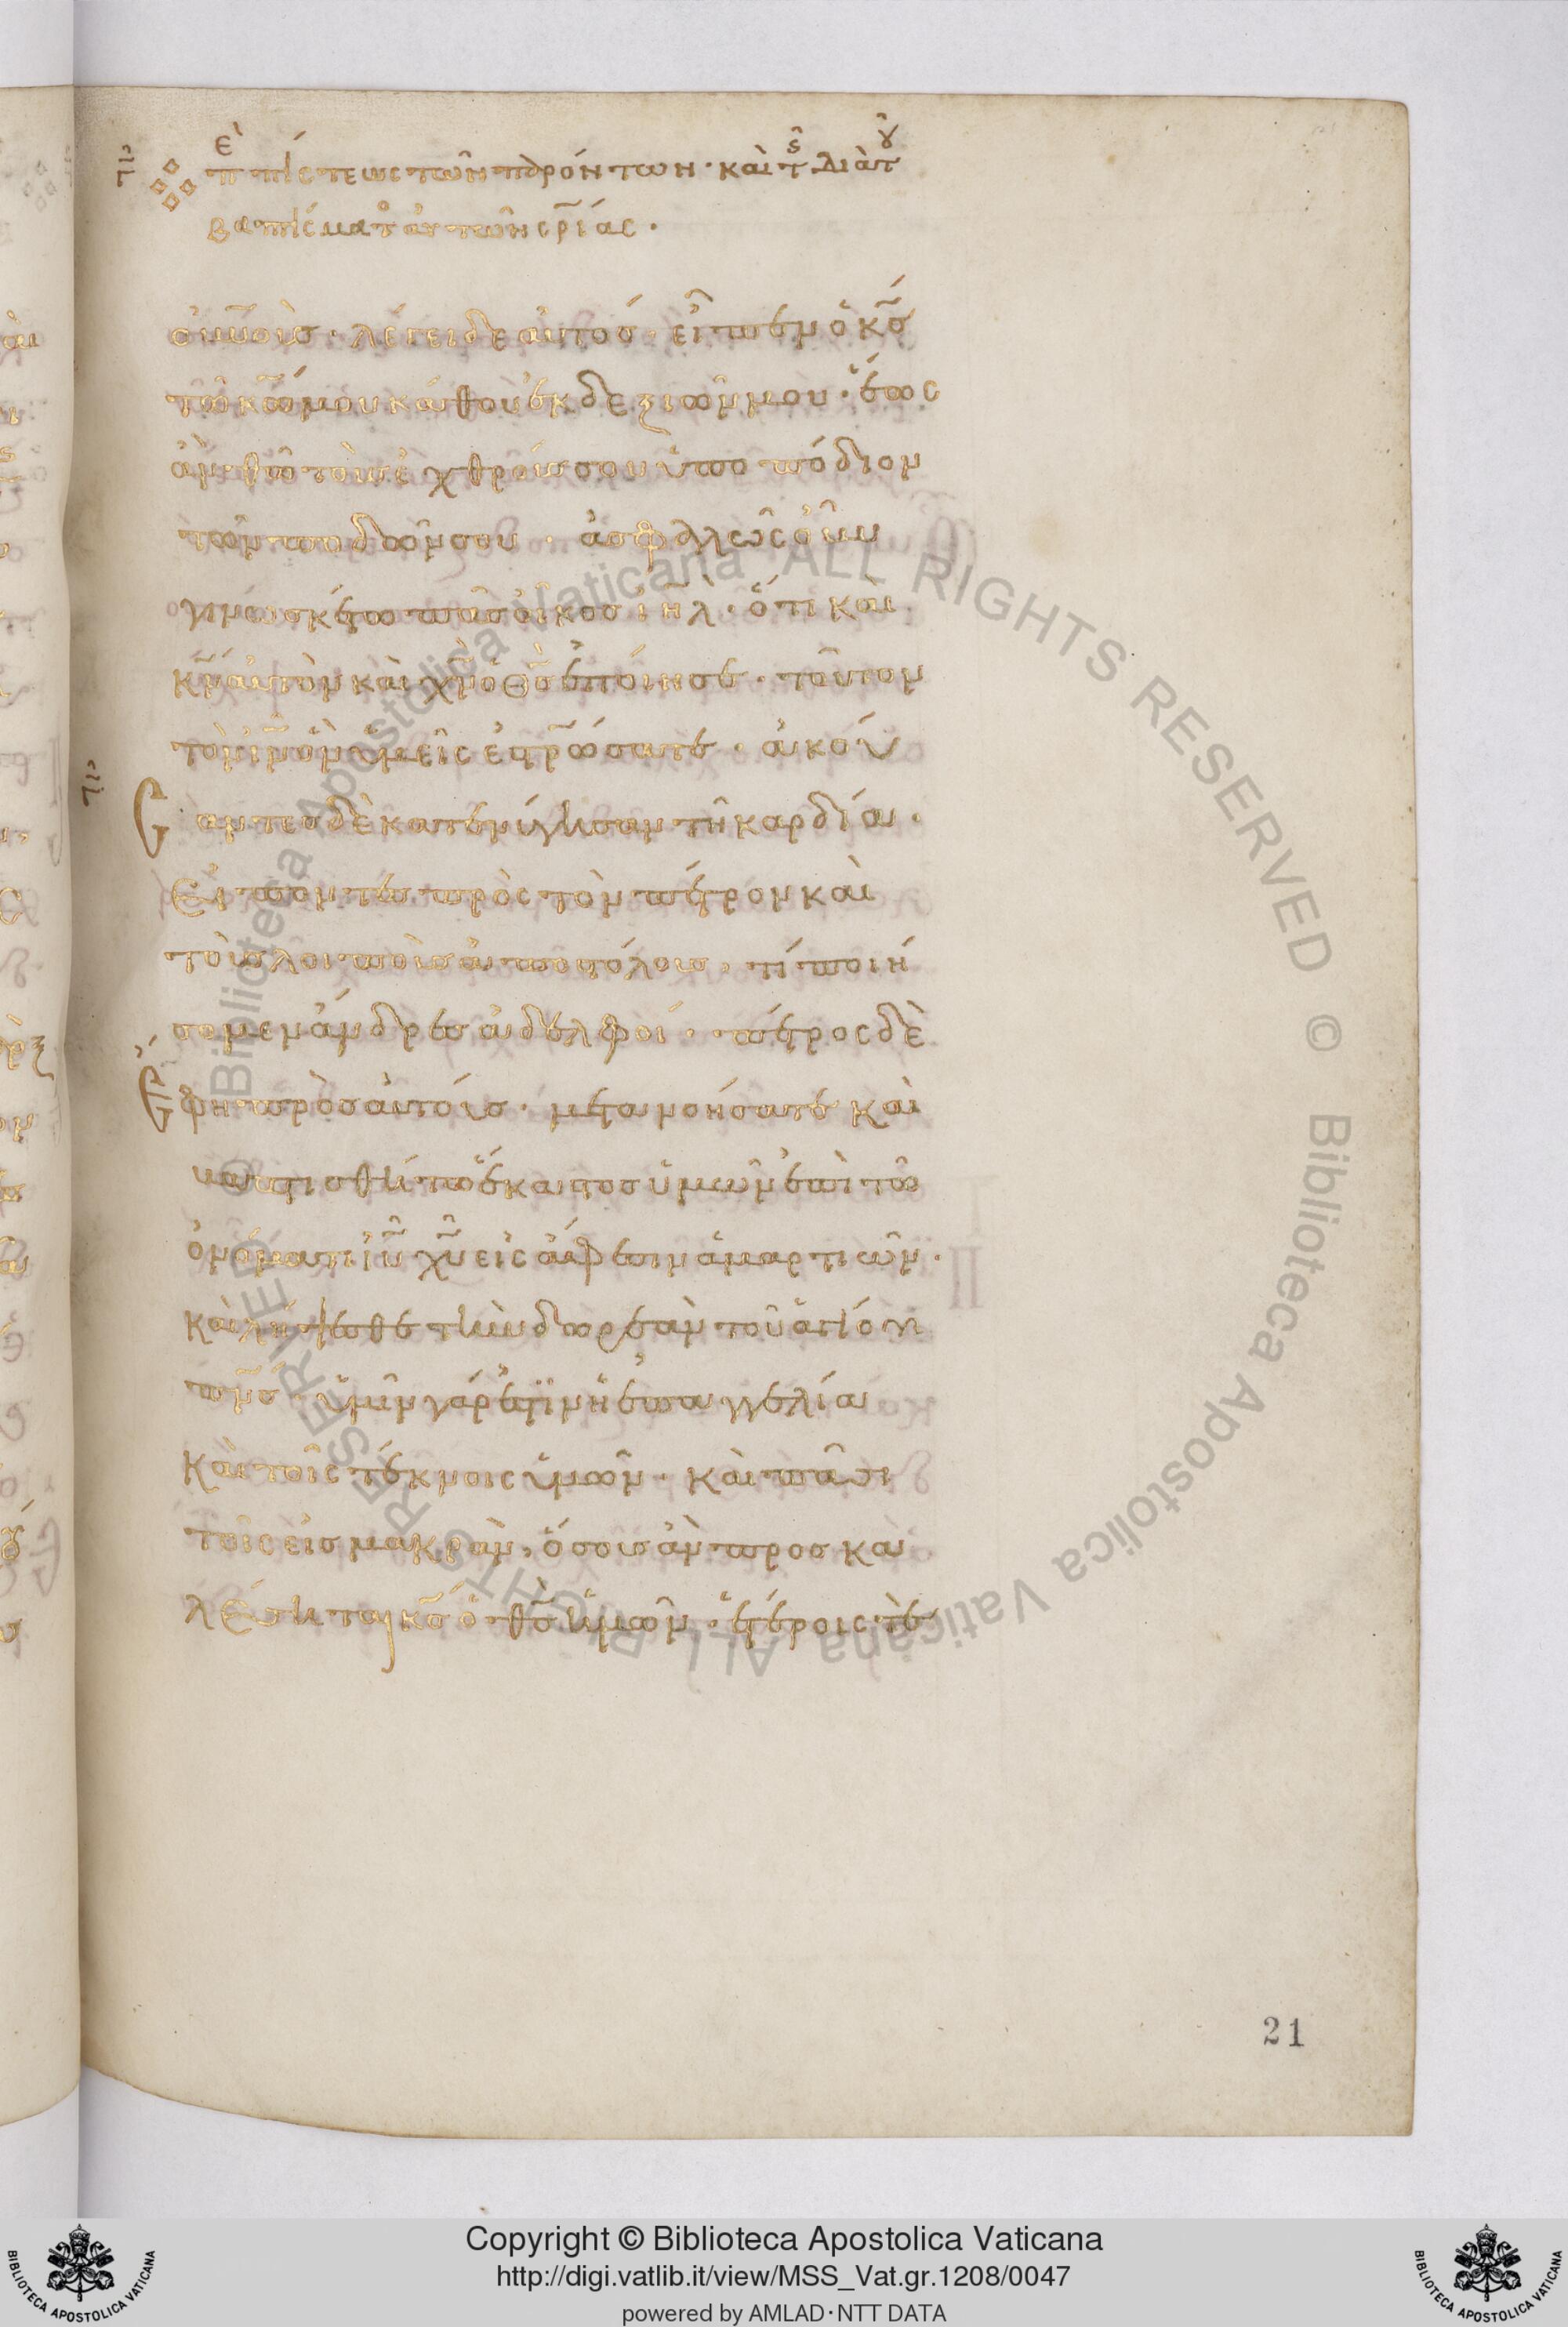 περὶ πίστεως τῶν παρόντων· καὶ τῆς διὰ τοῦ
βαπτίσματος αὐτῶν σ̅ρ̅ίας·
οὐνοὺς· λέγει δὲ αὐτός· εἶπεν ὁ κ̅ς̅
τῶ κ̅ω̅ μου κάθου ἐκ δεξιῶν μου· ἕως
ἂν θῶ τοὺς ἐχθρούς σου ὑποπόδιον
τῶν ποδῶν σου· ἀσφαλῶς οὖν
γινωσκέτω πᾶς οἶκος ι̅η̅λ̅· ὅτι καὶ
κ̅ν̅ αὐτὸν καὶ χ̅ν̅ ὁ θ̅ς̅ ἐποίησε· τοῦτον
τὸν ι̅ν̅ ὃν ὑμεῖς ἐσ̅ρ̅ώσατε· ἀκού
σαντες δὲ κατενύγησαν τῆ καρδία·
εἶπόν τε πρὸς τὸν πέτρον καὶ
τοὺς λοιποὺς ἀποστόλους· τί ποιή
σομεν ἄνδρες ἀδελφοί· πέτρος δὲ
ἔφη πρὸς αὐτούς· μετανοήσατε καὶ
βαπτισθήτω ἕκαστος ὑμῶν ἐπὶ τῶ
ὀνόματι ι̅υ̅ χ̅υ̅ εἰς ἄφεσιν ἁμαρτιῶν·
καὶ λήψεσθε τὴν δωρεὰν τοῦ ἁγίου
π̅ν̅ς̅· ὑμῖν γάρ ἐστϊν ἡ ἐπαγγελία
καὶ τοῖς τέκνοις ὑμῶν· καὶ πᾶσι
τοῖς εἰς μακρὰν, ὅσους ἂν προσκα
λέσηται κ̅ς̅ ὁ θ̅ς̅ ἡμῶν· ἑτέροις τὲ
21
Copyright © Biblioteca Apostolica Vaticana
http://digi.vatlib.it/view/MSS_Vat.gr.1208/0047
powered by AMLAD·NTT DATA